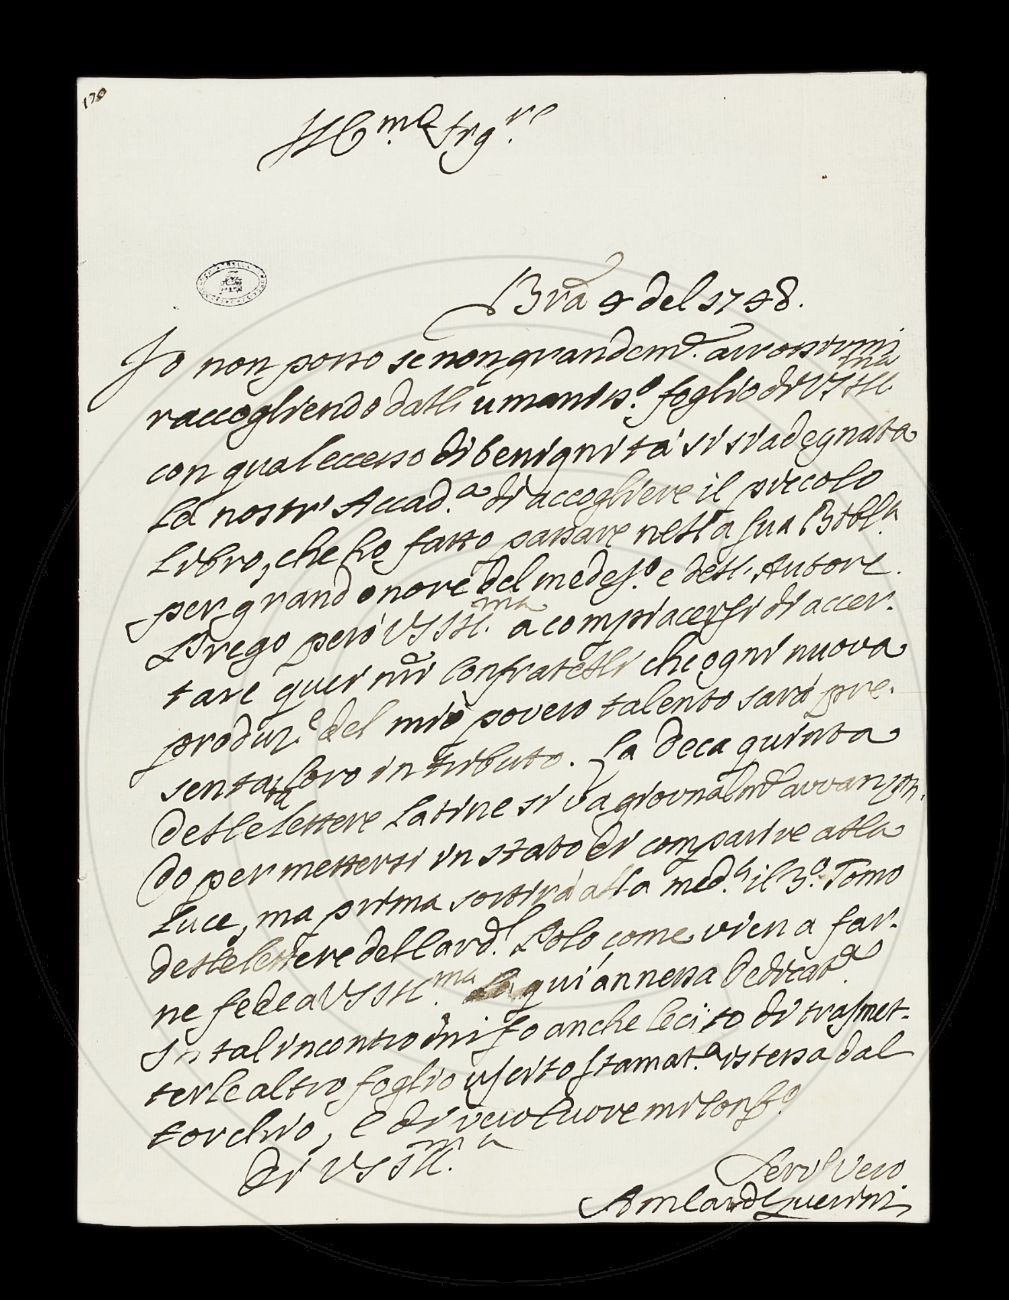 178
Ill.mo Sig.re
Bra 4 del 1748.
Io non posso se non grandem.e arrossirmi
raccogliendo dall' umaniss.o foglio di VS Ill.ma
con qual eccesso di benignità si sia degnata
la nostri Accad.a di accogliere il piccolo
Libro, che ho fatto passare nella sua
per grand onore del medes.o e dell' Autore.
Prego però VS Ill.ma a compiacersi di accer-
tare quei nri Confratelli che ogni nuova
produz.e del mio povero talento sarà pre-
sentata loro in tributo. La deca quinta
delle lettere Latine si va giornalm.e avvanzan-
do per mettersi in stato di comparire alla
Luce, ma prima sortirà alla med.a il 3.o Tomo
delle lettere del Card.l Polo, come viena far-
ne fede a VS Ill.ma qui annessa Dedicat.a
In tal incontro mi fo anche lecito di trasmet-
terle altro foglio uscito stamat.a istessa dal
torchio, e di vero Cuore mi
Di VS Ill.ma
Serv.l Vero
A m Card Querini